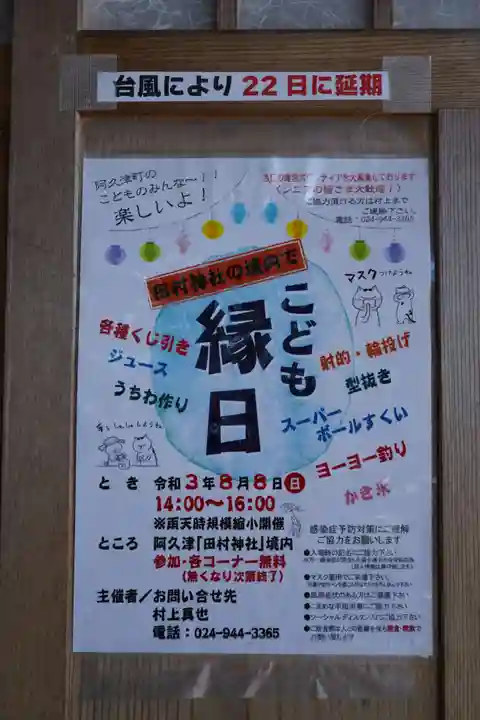 台風により 22日に延期
阿久津町のこどものみんな―!!
楽しいよ!
(シニアの皆さま大歓迎!)
ご協力頂ける方は村上まで
ご連絡下さい。
電話:024-944-3365
田村神社の境内で
こども
縁日
マスクつけようね
各種くじ引き
ジュース
うちわ作り
射的・輪投げ
型抜き
スーパー
ボールすくい
ヨーヨー釣り
かき氷
とき 令和3年8月8日(日)
14:00〜16:00
※雨天時規模縮小開催
ところ 阿久津「田村神社」境内
参加・各コーナー無料
(無くなり次第終了)
主催者/お問い合せ先
村上真也
電話:024-944-3365
感染症予防対策にご理解
ご協力をお願いします
●入場時の記名にご協力下さい
●マスク着用でご来場下さい。
●風邪症状のある方はご遠慮下さい
●こまめな手指消毒にご協力下さい
●ソーシャルディスタンスにご協力下さい